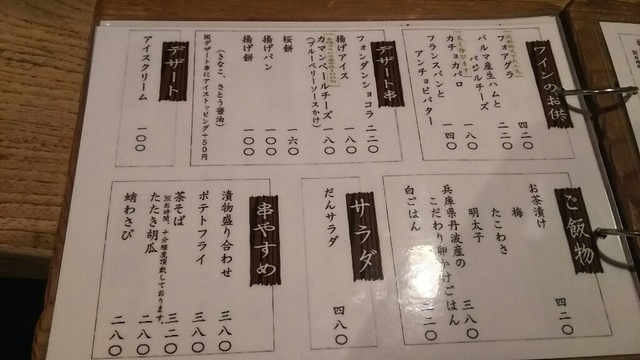 ワインのお供
フォアグラ
四二〇
パルマ産生ハムと
バジルチーズ
二二〇
カチョカバロ
一八〇
フランスパンと
アンチョビバター
一四〇
デザート串
フォンダンショコラ
二二〇
揚げアイス
一八〇
カマンベールチーズ
(ブルーベリーソースかけ)
一八〇
桜餅
一六〇
揚げパン
一〇〇
揚げ餅
一〇〇
(きなこ、きとう醤油)
※デザート串にアイストッピング+50円
デザート
アイスクリーム
一〇〇
ご飯物
お茶漬け
四二〇
梅
たこわさ
明太子
三八〇
兵庫県丹波産の
こだわり卵かけごはん
白ごはん
二二〇
サラダ
だんサラダ
四八〇
串やすめ
漬物盛り合わせ
三八〇
ポテトフライ
三八〇
茶そば
三二〇
※お時間、十分程度頂戴しております。
たたき胡瓜
二八〇
蛸わさび
二八〇